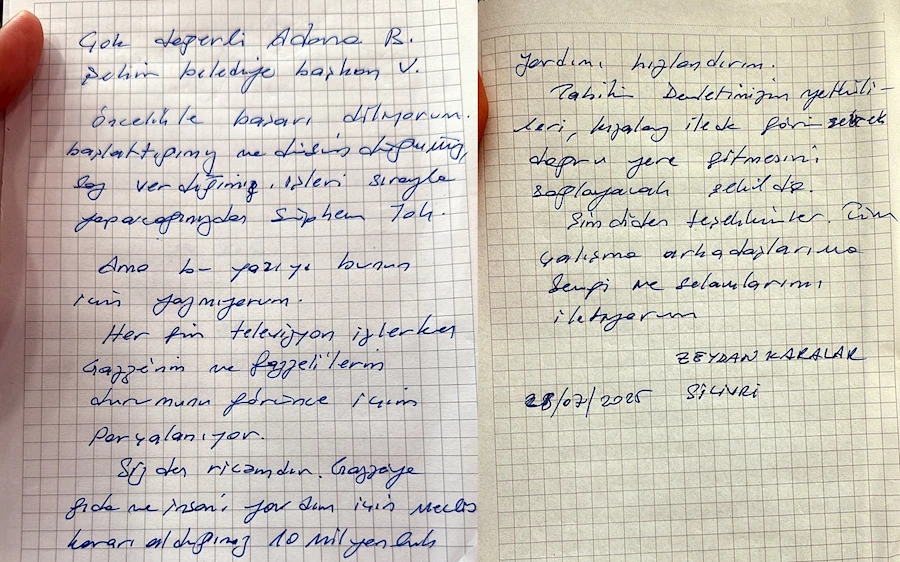 Çok değerli Adana B.
Şehir belediye başkan V.
Öncelikle başarı diliyorum.
başlattığımız ve düşündüğümüz,
söz verdiğimiz işleri sırayla
yapacağınızdan şüphem Yok.
Ama bu yazıyı bunun
için yazmıyorum.
Her gün televizyon izlerken
Gazze'nin ve Gazzeli'lerin
durumunu görünce içim
Parçalanıyor.
Sizden ricamdır. Gazzeye
gıda ve insani yardım için meclis
kararı aldığımız 10 milyonluk
yardımı hızlandırın.
Tabiki Devletimizin yetkili-
leri, kızılay ile görüşerek
doğru yere gitmesini
sağlayacak şekilde.
Şimdiden teşekkürler. Tüm
çalışma arkadaşlarıma
sevgi ve selamlarımı
iletiyorum
ZEYDAN KARALAR
28/07/2025 SİLİVRİ